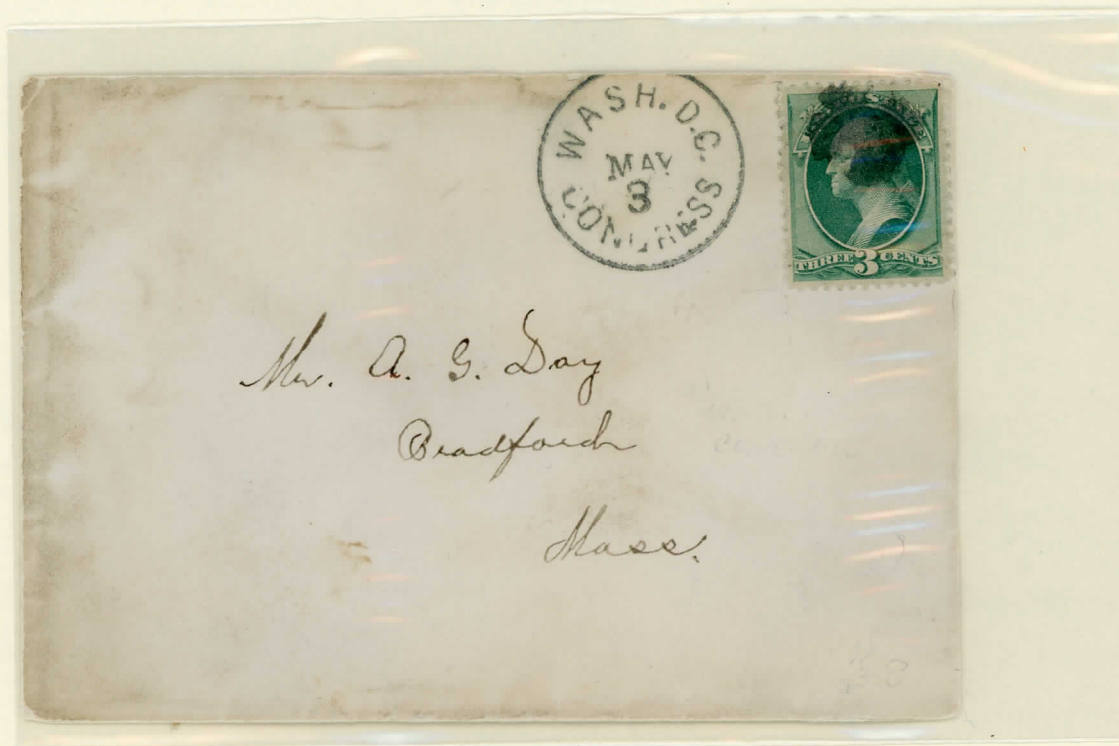 WASH. D.C.
MAY
3
CONGRESS
THREE 3 CENTS
Mr. A. G. Day
Bradford
Mass.